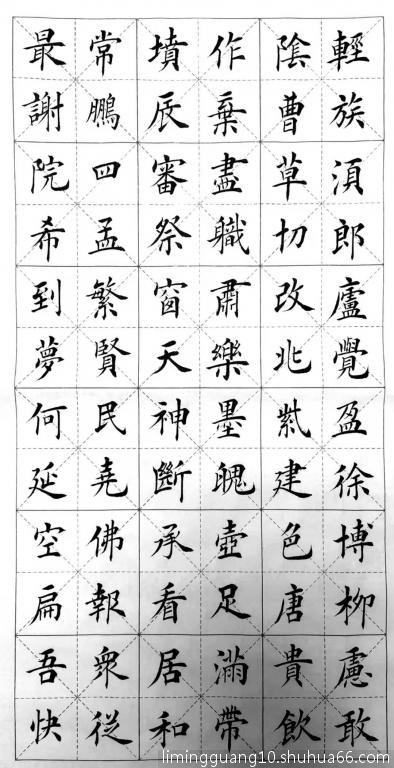 最常墳作陰輕
謝鵬辰棄曹族
院四審盡草湏
希孟祭職切郎
到繁窗肅改廬
夢賢天樂覺
何民神墨紫盈
延堯斷建徐
空佛承壺色博
扁報看足唐柳
吾衆居滿貴慮
快從和帶飲敢
limingguang10.shuhua66.com